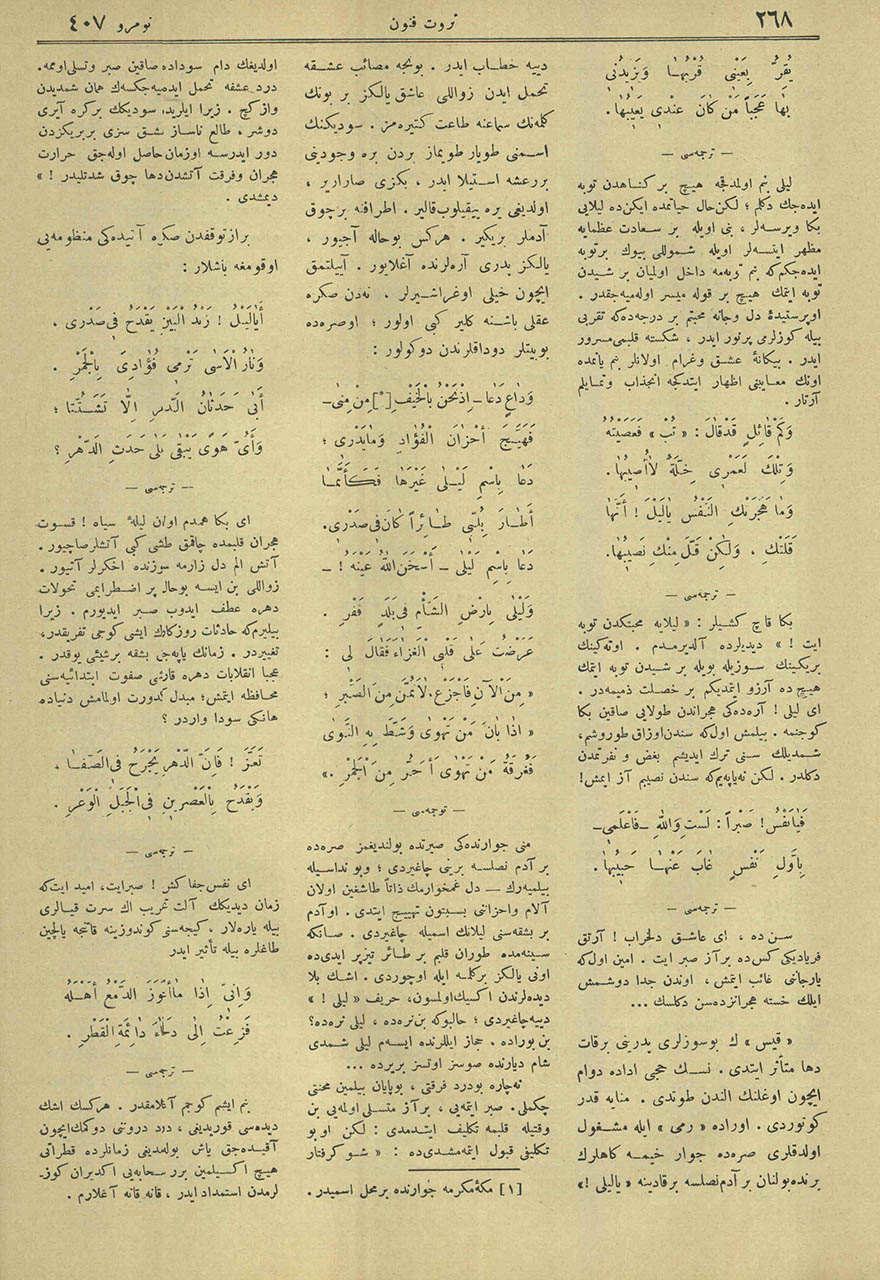 ٢٦٨
ثروت فنون
نومرو ٤٠٧
يُقِرُّ بِعَيْنِى قُرْبُهَا وَيَزِيدُنِى
بِهَا عَجَباً مَنْ كَانَ عِنْدِى يَعِيبُهَا.
— ترجمه‌سى —
ليلى بنم اولدقجه هيچ بر كناهدن توبه
ايده‌جك دكلم ؛ لكن حال حياتمده ايكن‌ده ليلايى
بكا ويرسه‌لر ، بنى اويله بر سعادت عظمايه
مظهر ايتسه‌لر اويله شموللى بيوك برتوبه
ايده‌جكم‌كه بنم توبه‌مه داخل اولميان بر شيدن
توبه ايتمك هيچ بر قوله ميسر اوله‌ميه‌جقدر .
اوپرستيدهٔ دل وجانه محبتم بر درجه‌ده‌كه تقربى
بيله كوزلرمى پرنور ايدر ، شكسته قلبمى‌مسرور
ايدر . بيكانهٔ عشق وغرام اولانلر بنم يانمده
اونك معايبنى اظهار ايتدكجه انجذاب وتمايلم
آرتار .
وَكَمْ قَائِلٍ قَدْقَالَ : « تُبْ » فَعَصَيْتُهُ
وَتِلْكَ لَعَمْرِى خِلَّةٌ لاَأُصِيبُهَا.
وَمَا هَجَرَتْكِ النَّفْسُ يَالَيْلَ ! أَنَّهَا
قَلَتْكِ ، وَلٰكِنْ قَلَّ مِنْكِ نَصِيبُهَا.
— ترجمه‌سى —
بكا قاچ كشيلر : « ليلايه محبتكدن توبه
ايت ! » ديديلرده آلديرمدم . اوته‌كينك
بريكينك سوزيله بويله بر شيدن توبه ايتمك
هيچ ده آرزو ايتمديكم بر خصلت ذميمه‌در .
اى ليلى ! آره‌ده‌كى هجراندن طولايى صاقين بكا
كوجنمه . بيلمش اول‌كه سندن‌اوزاق طوروشم،
شمديلك سنى ترك ايديشم بغض و نفرتمدن
دكلدر . لكن نه‌ياپه‌يم‌كه سندن نصيبم آز ايمش!
فَيَانَفْسُ! صَبْراً : لَسْتِ وَاللهِ ـ فَاعْلَمِى ـ
بِأَوَّلِ نَفْسٍ غَابَ عَنْهَا حَبِيبُهَا.
— ترجمه‌سى —
سن ده ، اى عاشق دلخراب ! آرتق
فريادیكى كس‌ده برآز صبر ايت . امين اول‌كه
يارجاننى غائب ايتمش ، اوندن جدا دوشمش
ايلك خسته هجرانزده‌سن دكلسك ...
« قيس » ك بوسوزلرى پدرينى برقات
دها متأثر ايتدى . نسك حجى اداده دوام
ايچون اوغلنك الندن طوتدى . منايه قدر
كوتوردى . اوراده « رمى » ايله مشغول
اولدقلرى صره‌ده جوار خيمه كاهلرك
برنده‌بولنان بر آدم‌نصلسه برقادينه « ياليلى !»
دييه خطاب ايدر . بونجه مصائب عشقه
تحمل ايدن زواللى عاشق يالكز بر بونك
كلمه‌نك سماعنه طاعت كتيره‌مز . سوديكنك
اسمنى طويار طويماز بردن بره وجودينى
بررعشه استيلا ايدر ، بكزى صارارير ،
اولديغى يره ييقيلوب‌قالير . اطرافنه برچوق
آدملر بريكير . هركس بوحاله آجيور ،
يالكز پدرى آره‌لرنده آغلايور . آييلتمق
ايچون خيلى اوغراشيرلر . نه‌دن صكره
عقلى باشنه كلير كبى اولور ؛ اوصره‌ده
بوبيتلر دوداقلرندن دوكولور :
وَدَاعٍ دَعَا ـ اِذْنَحْنُ بِالْخَيْفِ[*]مِنْ مِنٰى ـ
فَهَيَّجَ أَحْزَانَ الْفُؤَادِ وَمَايَدْرِى ؛
دَعَا بِاسْمِ لَيْلٰى غَيْرَهَا فَكَأَنَّمَا
أَطَارَ بِلُبِّى طَائِراً كَانَ فِى صَدْرِى.
دَعَا بِاسْمِ لَيْلٰى ـ أَسْخَنَ اللهُ عَيْنَهُ ! ـ
وَلَيْلٰى بِأَرْضِ الشَّأْمِ فِى بَلَدٍ قَفْرِ .
عَرَضْتُ عَلٰى قَلْبِى الْعَزَاءَ فَقَالَ لِى :
« مِنَ الْآنَ فَاجْزَعْ. لاَتَمُنَّ مِنَ الصَّبْرِ ؛
« اذَا بَانَ مَنْ تَهْوٰى وَشَطَّ بِهِ النَّوٰى
فَفُرْقَةُ مَنْ تَهْوٰى أَحَرُّ مِنَ الْجَمْرِ .»
— ترجمه‌سى —
منى جوارنده‌كى صبرتده بولنديغمز صره‌ده
بر آدم نصلسه برينى چاغيردى ؛ وبو نداسيله
بيلميه‌رك — دل غمخوارمك ذاتاً طاشغين اولان
آلام واحزاننى بسبتون تهييج ايتدى . اوآدم
بر بشقه‌سنى ليلانك اسميله چاغيردى . صانكه
سينه‌مده طوران قلبم بر طائر تيزپر ايدى‌ده
اونى يالكز بركلمه ايله اوچوردى . اشك بلا
ديده‌لرندن اكسيك‌اولمسون، حريف « ليلى ! »
دييه‌چاغيردى ؛ حالبوكه بن‌نره‌ده ، ليلى نره‌ده؟
بن بوراده ، حجاز ايللرنده ايسه‌م ليلى شمدى
شام ديارنده صوسز اوتسز بريرده ...
نه‌چاره بودرد فرقتى ، بوپايان بيلمين محنتى
چكملى. صبر ايتمه‌يى ، برآز متسلى اولمه‌يى بن
وقتيله قلبمه تكليف ايتدمدى : لكن اوبو
تكليفى قبول ايتمه‌مشدى‌ده : « شوكرفتار
[١] مكهٔ مكرمه جوارنده برمحل اسميدر .
اولديغك دام سوداده صاقين صبر وتسلى‌اومه.
درد عشقه تحمل ايده‌ميه‌جكسه‌ك همان شمديدن
وازكچ . زيرا ايلريد، سوديكك بركره آيرى
دوشر ، طالع ناساز بشق سزى بربريكزدن
دور ايدرسه اوزمان حاصل اوله‌جق حرارت
هجران وفرقت آتشدن‌دها چوق شدتليدر !»
ديمشدى .
برازتوقفدن صكره آتيده‌كى منظومه‌يى
اوقومغه باشلار :
أَيَالَيْلُ ! زَنْدُ الْبَيْنِ يَقْدَحُ فِى صَدْرِى ،
وَنَارُ الْأَسٰى تَرْمِى فُؤَادِى بِالْجَمْرِ .
أَبٰى حَدَثَانُ الدَّهْرِ اِلَّا تَشَتُّتَنَا ؛
وَأَىُّ هَوًى يَبْقٰى عَلٰى حَدَثِ الدَّهْرِ ؟
— ترجمه‌سى —
اى بكا همدم اولان ليلهٔ سياه ! قسوت
هجران قلبمده چاقمق طشى كبى آتشلرصاچيور.
آتش الم دل زارمه سوزنده اخكرلر آتيور .
زواللى بن ايسه بوحال پر اضطرابمى تحولات
دهره عطف ايدوب صبر ايديورم . زيرا
بيليرم‌كه حادثات روزكارك ايشى كوجى تفريقدر،
تغييردر . زمانك ياپه‌جغى بشقه برشيئى يوقدر.
عجبا انقلابات دهره قارشى صفوت ابتدائيه‌سنى
محافظه ايتمش؛ مبدل كدورت اولمامش دنياده
هانكى سودا واردر ؟
تَعَزَّ ! فَاِنَّ الدَّهْرَ يَجْرَحُ فِى الصَّفَا ،
وَيَقْدَحُ بِالْعَصْرَيْنِ فِى الْجَبَلِ الْوَعْرِ .
— ترجمه‌سى —
اى نفس جفاكش ! صبرايت، اميد ايت‌كه
زمان ديديكك آلت تخريب اك سرت قيالرى
بيله ياره‌لار ، كيجه‌سنى كوندوزينه قاتنجه يالچين
طاغلره بيله تأثير ايدر
وَاِنِّى اِذَا مَاأَعْوَزَ الدَّمْعُ أَهْلَهُ
فَزِعْتُ اِلٰى دَلْحَاءَ دَائِمَةِ الْقَطْرِ .
— ترجمه‌سى —
بنم ايشم كوجم آغلامقدر . هركسك اشك
ديده‌سى قوريديغى ، درد درونى دوكمك‌ايچون
آقيده‌جق ياش بوله‌مديغى زمانلرده قطراتى
هيچ اكسيلمين برر سحابه‌يى اكديران كوز-
لرمدن استمداد ايدر ، قانه قانه آغلارم .